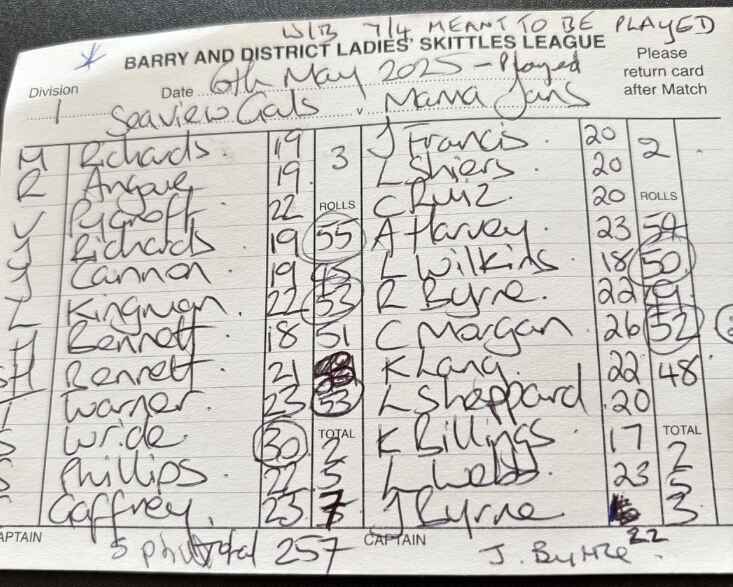 W/B 7/4 MEANT TO BE PLAYED
BARRY AND DISTRICT LADIES' SKITTLES LEAGUE
Please return card after Match
Division 1 Date 6th May 2025 - Played
Seaview Gals v Mama Jans
M Richards 19 3 J Francis 20 2
R Angove 19 L Shiers 20
V Pycroft 22 ROLLS C Ruiz 20 ROLLS
J Richards 19 55 A Harvey 23 54
J Cannon 19 45 L Wilkins 18 50
L Kingman 22 53 R Byrne 22 49
H Bennett 18 51 C Morgan 26 52
SH Bennett 21 K Lang 22 48
T Warner 23 53 L Sheppard 20
S Wride 30 TOTAL K Billings 17 TOTAL
S Phillips 22 2 5 7 L Webb 23 2 5 3
Gaffrey 23 J Byrne 22
CAPTAIN 257 CAPTAIN J. Byrne